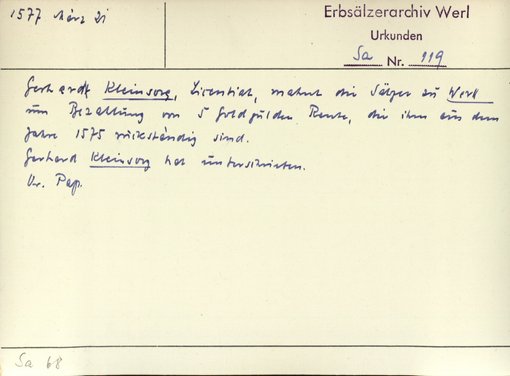 1577 März 21
Erbsälzerarchiv Werl
Urkunden
Sa Nr. 119
Gerhardt Kleinsorg, Licentiat, mahnt die Sälzer zu Werl
um Bezahlung von 5 Goldgulden Rente, die ihm aus dem
Jahre 1575 rückständig sind.
Gerhard Kleinsorg hat unterschrieben.
Or. Pap.
Sa 68